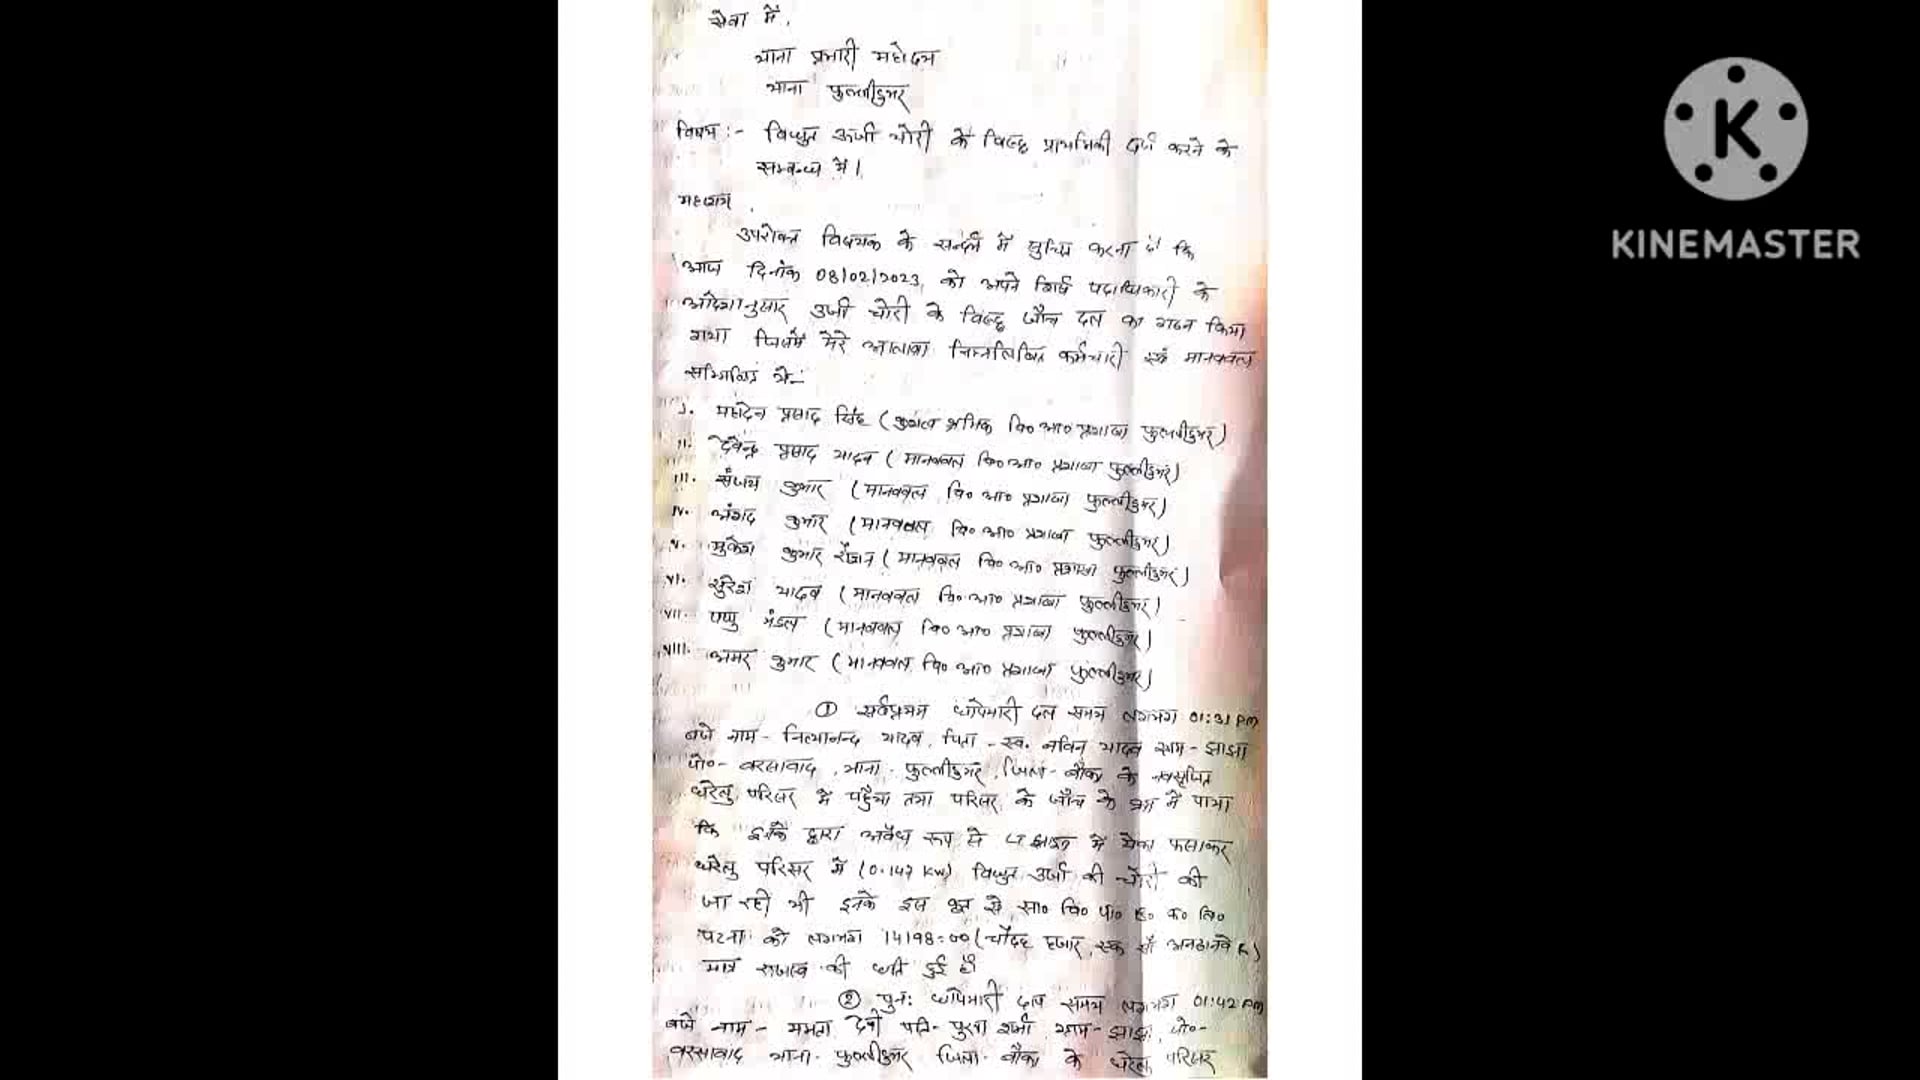 सेवा में,
थाना प्रभारी महोदय
थाना फुल्लीडुमर
विषय :- विद्युत ऊर्जा चोरी के विरुद्ध प्राथमिकी दर्ज करने के
सम्बन्ध में।
महाशय,
उपरोक्त विषयक के सन्दर्भ में सुचित करना है कि
आज दिनांक 08/02/2023, को अपने शीर्ष पदाधिकारी के
आदेशानुसार उर्जा चोरी के विरुद्ध जाँच दल का गठन किया
गया जिसमें मेरे अलावा निम्नलिखित कर्मचारी एवं मानवबल
सम्मिलित थे:-
I. महादेव प्रसाद सिंह (कुशल श्रमिक वि० आ० प्रशाखा फुल्लीडुमर)
II. देवेन्द्र प्रसाद यादव (मानवबल वि० आ० प्रशाखा फुल्लीडुमर)
III. संजय कुमार (मानवबल वि० आ० प्रशाखा फुल्लीडुमर)
IV. अंगद कुमार (मानवबल वि० आ० प्रशाखा फुल्लीडुमर)
V. मुकेश कुमार रौशन (मानवबल वि० आ० प्रशाखा फुल्लीडुमर)
VI. सुरेश यादव (मानवबल वि० आ० प्रशाखा फुल्लीडुमर)
VII. पप्पु मंडल (मानवबल वि० आ० प्रशाखा फुल्लीडुमर)
VIII. अमर कुमार (मानवबल वि० आ० प्रशाखा फुल्लीडुमर)
① सर्वप्रथम छापेमारी दल समय लगभग 01:31 PM
बजे नाम - नित्यानन्द यादव, पिता - स्व. नविन यादव ग्राम - झाझा
पो०- बरसाबाद, थाना - फुल्लीडुमर, जिला - बाँका के
घरेलु परिसर में पहुँचा तथा परिसर के जाँच के क्रम में पाया
कि इनके द्वारा अवैध रूप से LT लाइन में टोका फसाकर
घरेलु परिसर में (0.147 KW) विद्युत उर्जा की चोरी की
जा रही थी इनके इस कृत से सा० बि० पा० डि० क० लि०
पटना को लगभग 14198=00 (चौदह हजार, एक सौ अनठानवे रू)
मात्र राजस्व की क्षति हुई है।
② पुनः छापेमारी दल समय लगभग 01:42 PM
बजे नाम - ममता देवी पति - शर्मा ग्राम - झाझा, पो०-
बरसाबाद थाना - फुल्लीडुमर जिला - बाँका के घरेलु परिसर
K
KINEMASTER